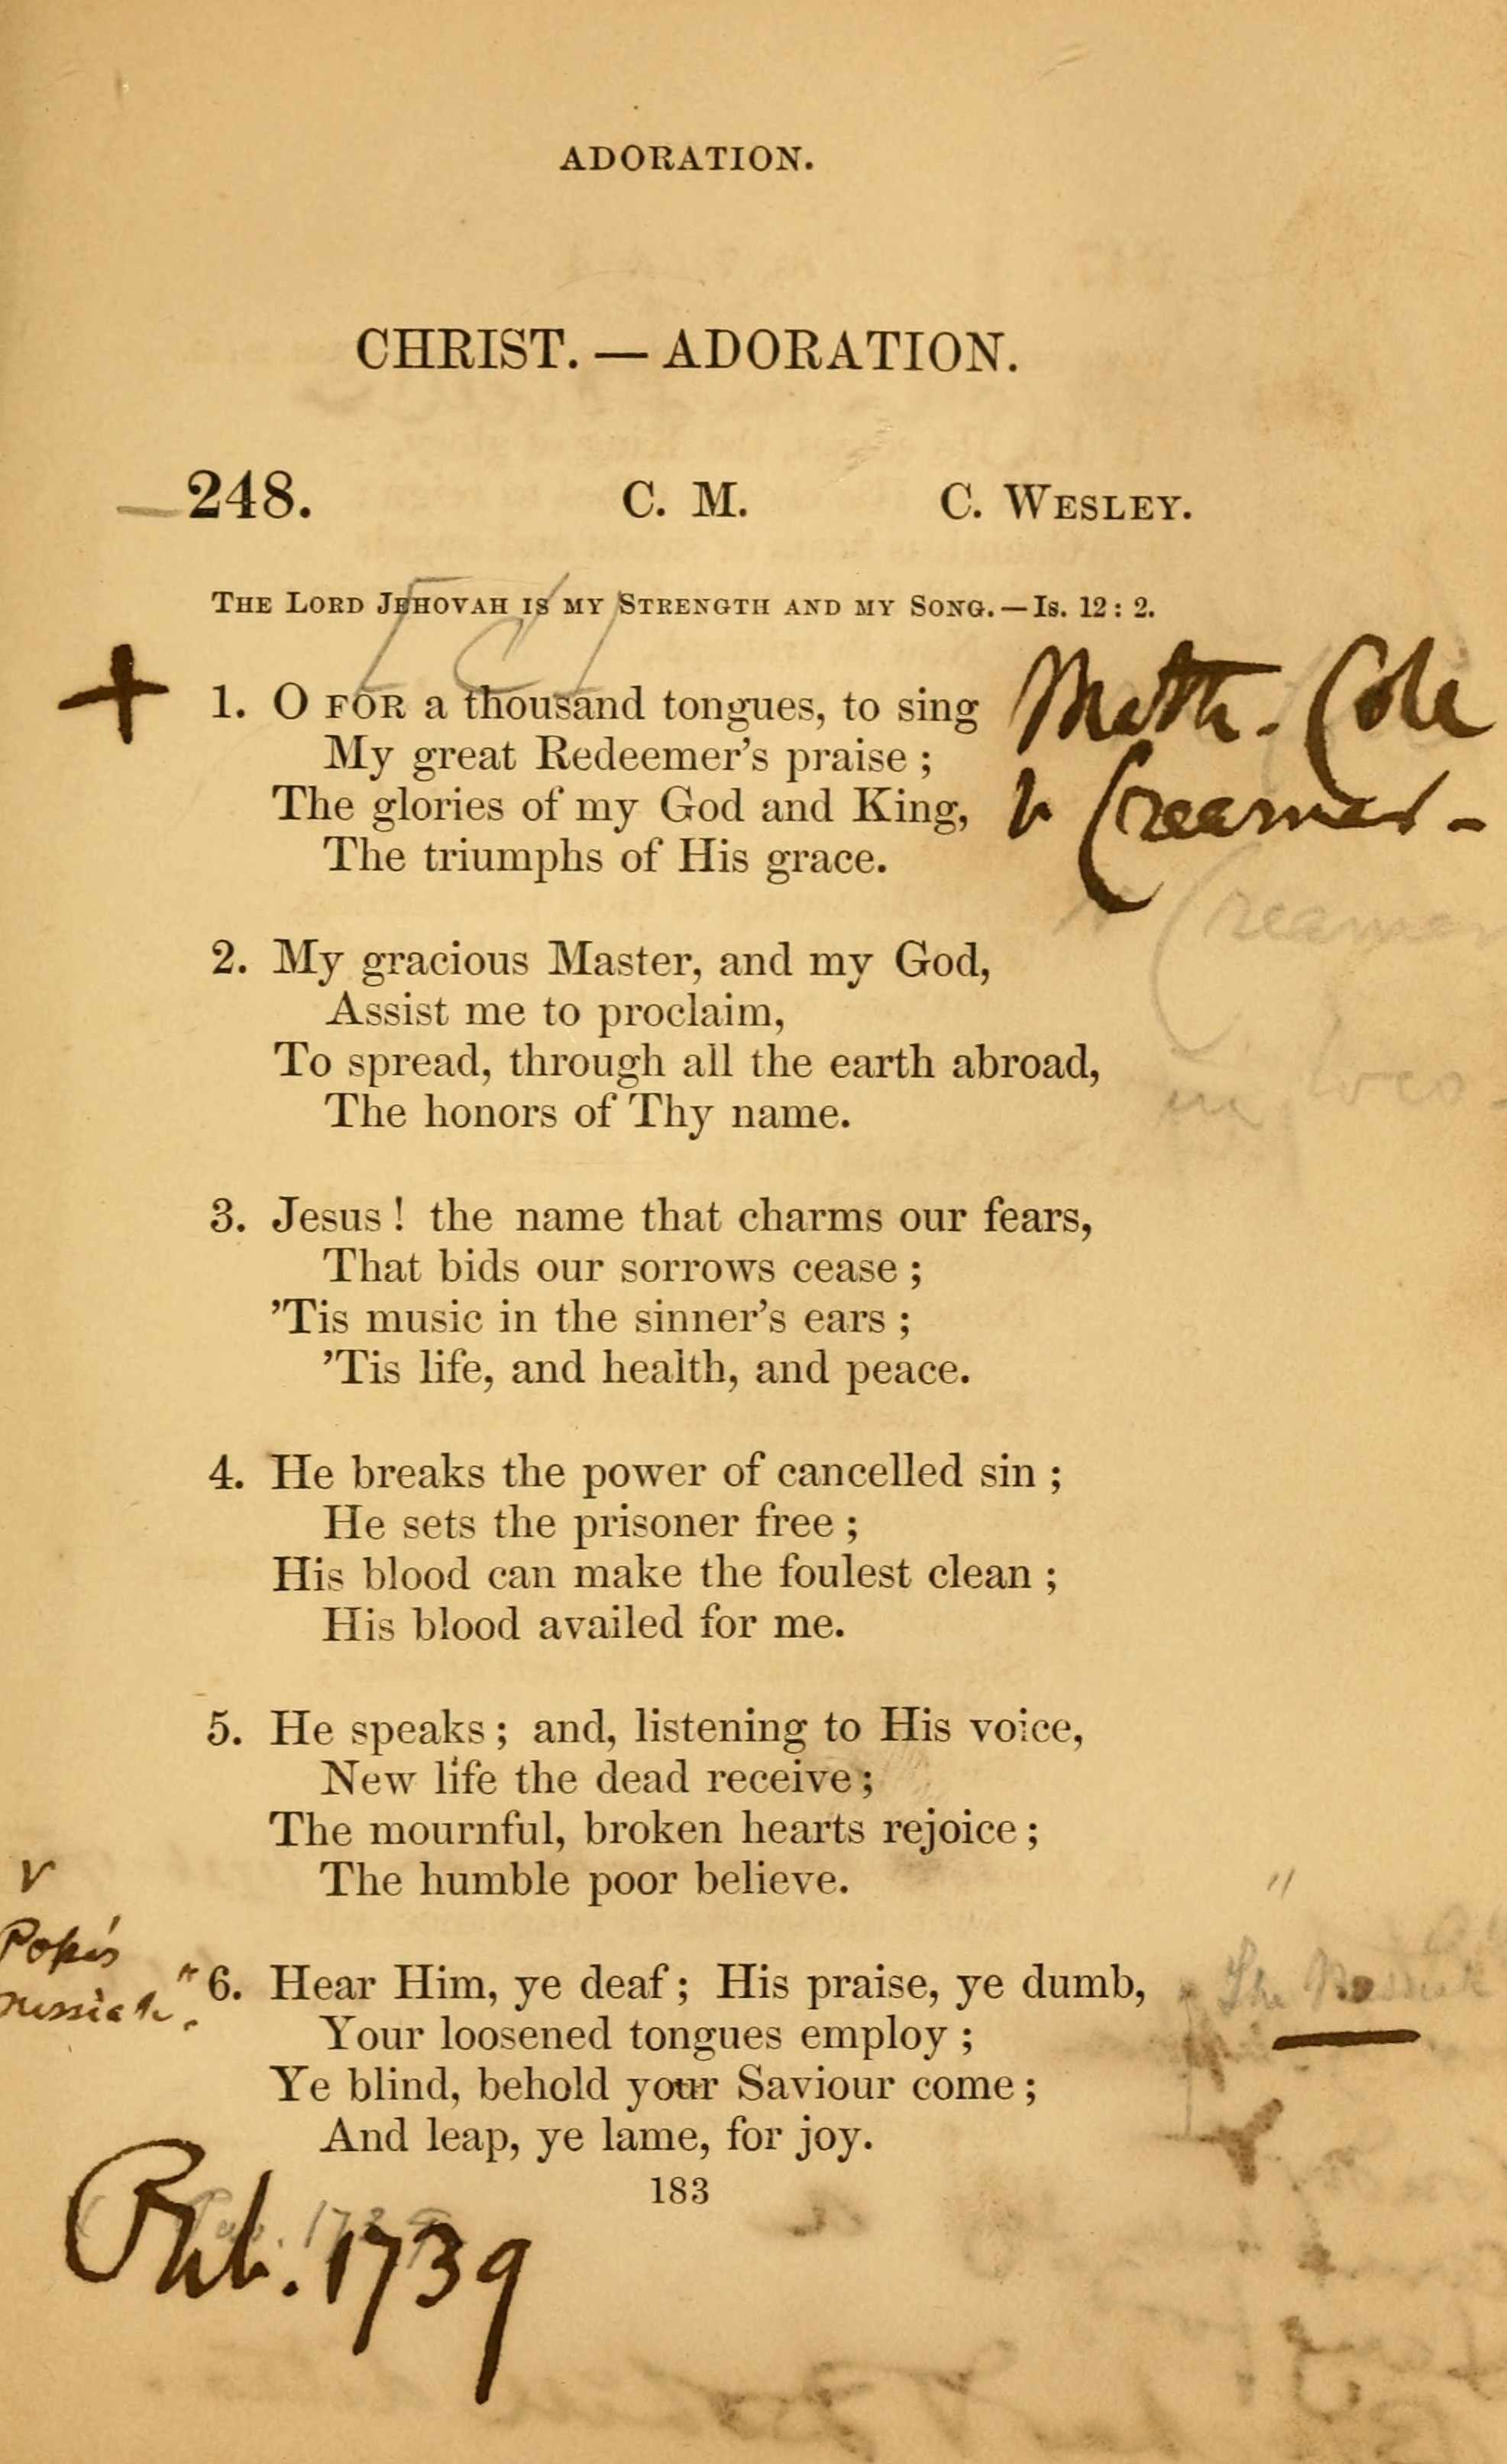 ADORATION.
CHRIST. — ADORATION.
248. C. M. C. WESLEY.
THE LORD JEHOVAH IS MY STRENGTH AND MY SONG. — Is. 12 : 2.
+ 1. O FOR a thousand tongues, to sing
My great Redeemer's praise ;
The glories of my God and King,
The triumphs of His grace.
Meth. Cole
v Creamer -
Creamer
in loco -
2. My gracious Master, and my God,
Assist me to proclaim,
To spread, through all the earth abroad,
The honors of Thy name.
3. Jesus ! the name that charms our fears,
That bids our sorrows cease ;
'Tis music in the sinner's ears ;
'Tis life, and health, and peace.
4. He breaks the power of cancelled sin ;
He sets the prisoner free ;
His blood can make the foulest clean ;
His blood availed for me.
5. He speaks ; and, listening to His voice,
New life the dead receive ;
The mournful, broken hearts rejoice ;
The humble poor believe.
v
Pope's
messiah.
" 6. Hear Him, ye deaf ; His praise, ye dumb,
Your loosened tongues employ ;
Ye blind, behold your Saviour come ;
And leap, ye lame, for joy.
183
Pub. 1739